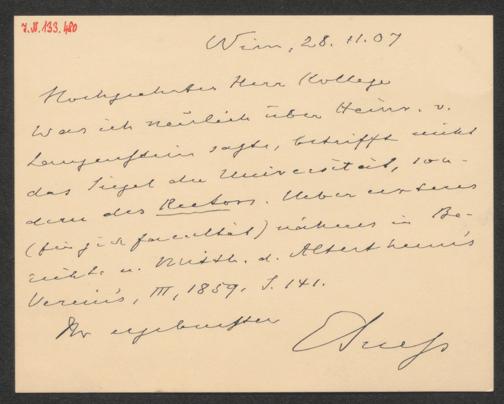 I.N. 133.480
Wien, 28.11.07
Hochgeehrter Herr Kollege
Was ich neulich über Heinr. v.
Langenstein sagte, betrifft nicht
das Siegel der Universität, son-
dern des Rectors. Ueber ersteres
facultät) näheres in Be-
richte u. Mitth. d. Alterthums
Vereins, III, 1859, S. 141.
Ihr ergebenster
ESuess